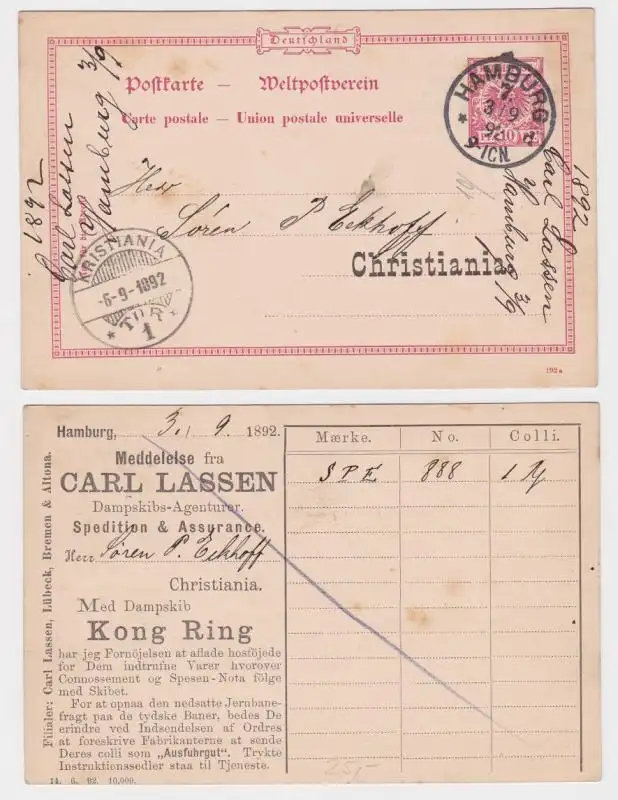 Deutschland
Postkarte — Weltpostverein
Carte postale — Union postale universelle
HAMBURG
7.
3/9
92
9-10N.
d
10
Herr
Sören P. Eckhoff
Christiania
KRISTIANIA
-5-9-1892
TUR
1
1892
Carl Lassen
Hamburg 3/9
1892
Carl Lassen
Hamburg 3/9
192a
Hamburg, 3. 9. 1892.
Meddelelse fra
CARL LASSEN
Dampskibs-Agenturer.
Spedition & Assurance.
Herr Sören P. Eckhoff
Christiania.
Med Dampskib
Kong Ring
har jeg Fornöjelsen at aflade hostöjede
for Dem indtrufne Varer hvorover
Connossement og Spesen-Nota fölge
med Skibet.
For at opnaa den nedsatte Jernbane-
fragt paa de tydske Baner, bedes De
erindre ved Indsendelsen af Ordres
at foreskrive Fabrikanterne at sende
Deres colli som „Ausfuhrgut“. Trykte
Instruktionssedler staa til Tjeneste.
14. 6. 92. 10,000.
Filialer: Carl Lassen, Lübeck, Bremen & Altona.
Mærke. No. Colli.
S P E 888 1
25,-